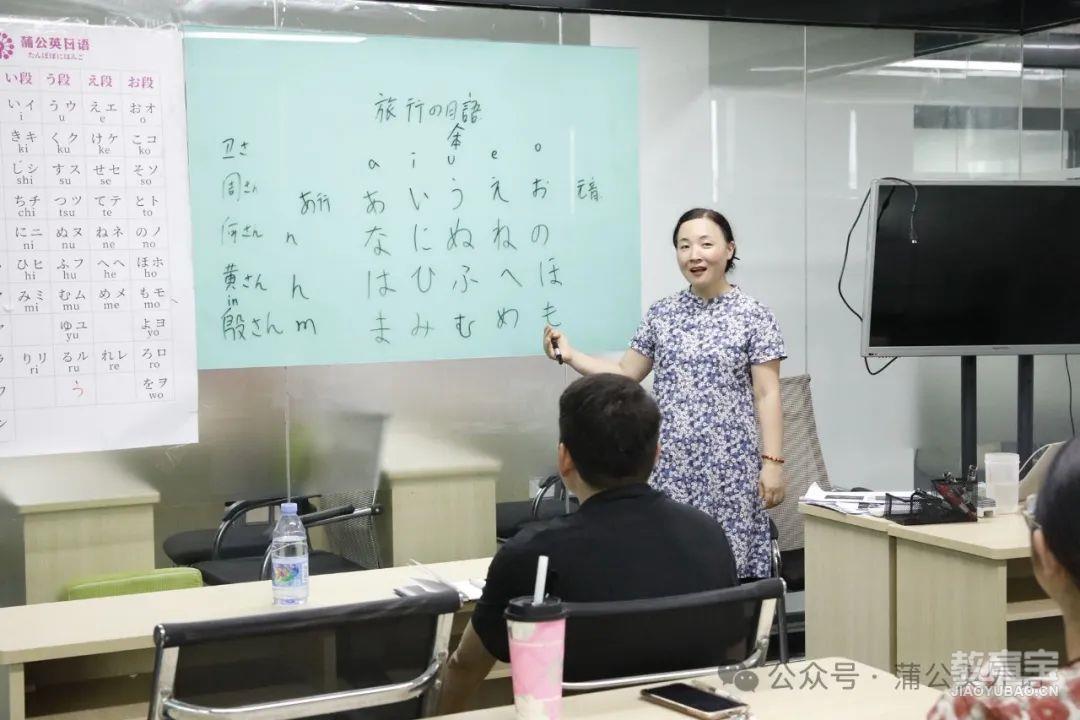 蒲公英日语
たんぽぽにほんご
い段 う段 え段 お段
いイ うウ えエ おオ
i u e o
きキ くク けケ こコ
ki ku ke ko
しシ すス せセ そソ
shi su se so
ちチ つツ てテ とト
chi tsu te to
にニ ぬヌ ねネ のノ
ni nu ne no
ひヒ ふフ へヘ ほホ
hi hu he ho
みミ むム めメ もモ
mi mu me mo
ゆユ よヨ
yu yo
りリ るル れレ ろロ
ri ru re ro
う をヲ
wo
ン
旅行の日語
卫さ
a i u e o
周さん あ行 あ い う え お 元音
何さん n な に ぬ ね の
黄さん h は ひ ふ へ ほ
in
殷さん m ま み む め も
公众号 · 蒲公英
教育宝
JIAOYUBAO.CN